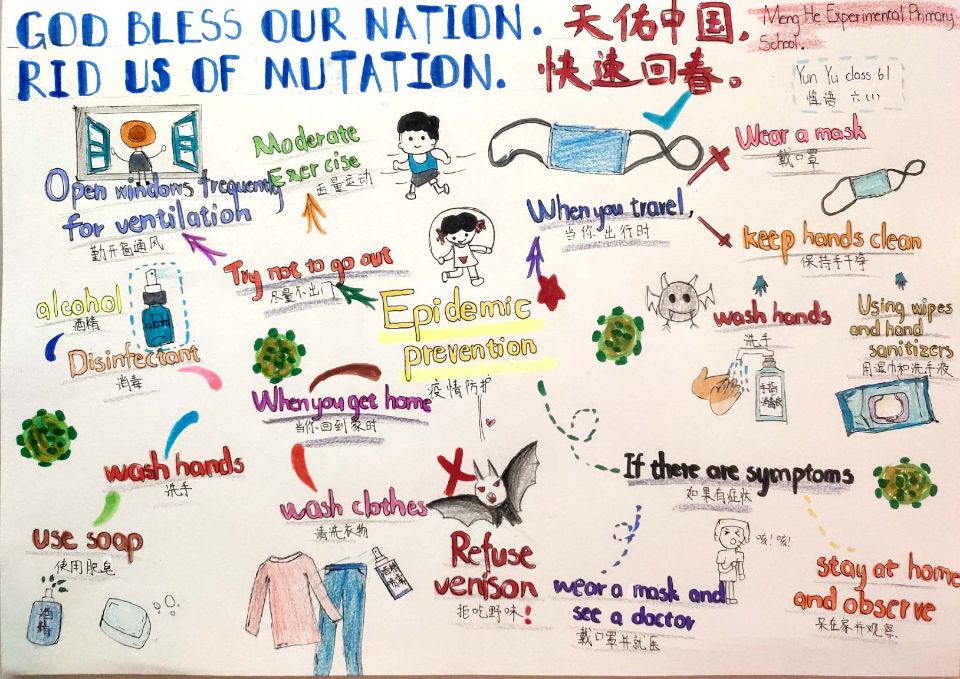 GOD BLESS OUR NATION. 天佑中国,
RID US OF MUTATION. 快速回春。
Meng He Experimental Primary
School.
Yun Yu class 61
恽语 六(1)
Open windows frequently
for ventilation
勤开窗通风
Moderate
Exercise
适量运动
Try not to go out
尽量不出门
Epidemic
prevention
疫情防护
When you travel,
当你出行时
Wear a mask
戴口罩
keep hands clean
保持手干净
wash hands
洗手
Using wipes
and hand
sanitizers
用湿巾和洗手液
alcohol
酒精
alcohol
Disinfectant
消毒
When you get home
当你回到家时
wash hands
洗手
use soap
使用肥皂
酒精
wash clothes
清洗衣物
酒精
Refuse
venison
拒吃野味!
If there are symptoms
如果有症状
wear a mask and
see a doctor
戴口罩并就医
咳!咳!
stay at home
and observe
呆在家并观察